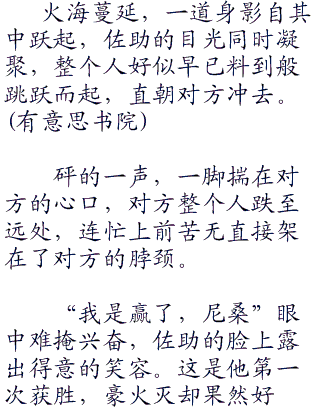 火海蔓延，一道身影自其
中跃起，佐助的目光同时凝
聚，整个人好似早已料到般
跳跃而起，直朝对方冲去。
(有意思书院)
砰的一声，一脚揣在对
方的心口，对方整个人跌至
远处，连忙上前苦无直接架
在了对方的脖颈。
“我是赢了，尼桑”眼
中难掩兴奋，佐助的脸上露
出得意的笑容。这是他第一
次获胜，豪火灭却果然好